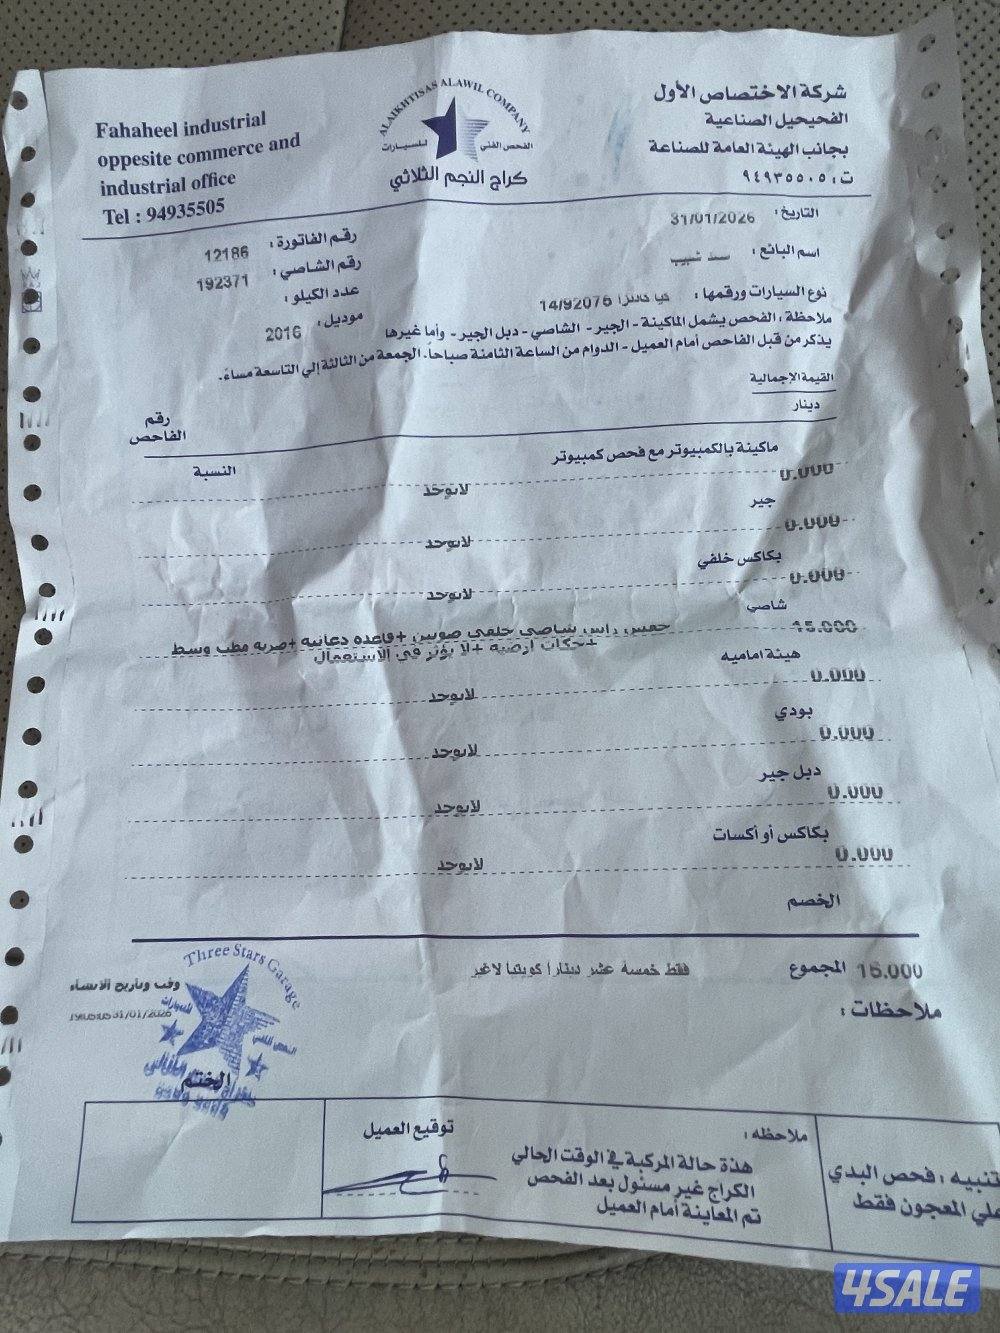 Fahaheel industrial
oppesite commerce and
industrial office
Tel : 94935505
ALAIKHTISAS ALAWIL COMPANY
الفحص الفني للسيارات
كراج النجم الثلاثي
شركة الاختصاص الأول
الفحيحيل الصناعية
بجانب الهيئة العامة للصناعة
ت : ٩٤٩٣٥٥٠٥
التاريخ : 31/01/2026
رقم الفاتورة : 12186
اسم البائع :
رقم الشاصي : 192371
نوع السيارات ورقمها : 14/92076
عدد الكيلو :
موديل : 2016
ملاحظة : الفحص يشمل الماكينة - الجير - الشاصي - دبل الجير - وأما غيرها
يذكر من قبل الفاحص أمام العميل - الدوام من الساعة الثامنة صباحاً. الجمعة من الثالثة إلي التاسعة مساءً.
القيمة الإجمالية
دينار
رقم
الفاحص
النسبة
ماكينة بالكمبيوتر مع فحص كمبيوتر
0.000
لايوجد
جير
0.000
لايوجد
بكاكس خلفي
0.000
لايوجد
شاصي
15.000
راس شاصي خلفي صوبين +قاعده دعاميه +ضربه مطب وسط
+حكات ارضيه +لا يؤثر في الاستعمال
هيئة اماميه
0.000
لايوجد
بودي
0.000
لايوجد
دبل جير
0.000
لايوجد
بكاكس أو أكسات
0.000
لايوجد
الخصم
المجموع 15.000
فقط خمسة عشر ديناراً كويتيا لاغير
ملاحظات :
Three Stars Garage
وقت وتاريخ الانشاء
31/01/2026
الفحص الفني
للسيارات
الختم
توقيع العميل
ملاحظه :
هذة حالة المركبة في الوقت الحالي
الكراج غير مسئول بعد الفحص
تم المعاينة أمام العميل
تنبيه : فحص البدي
علي المعجون فقط
4SALE